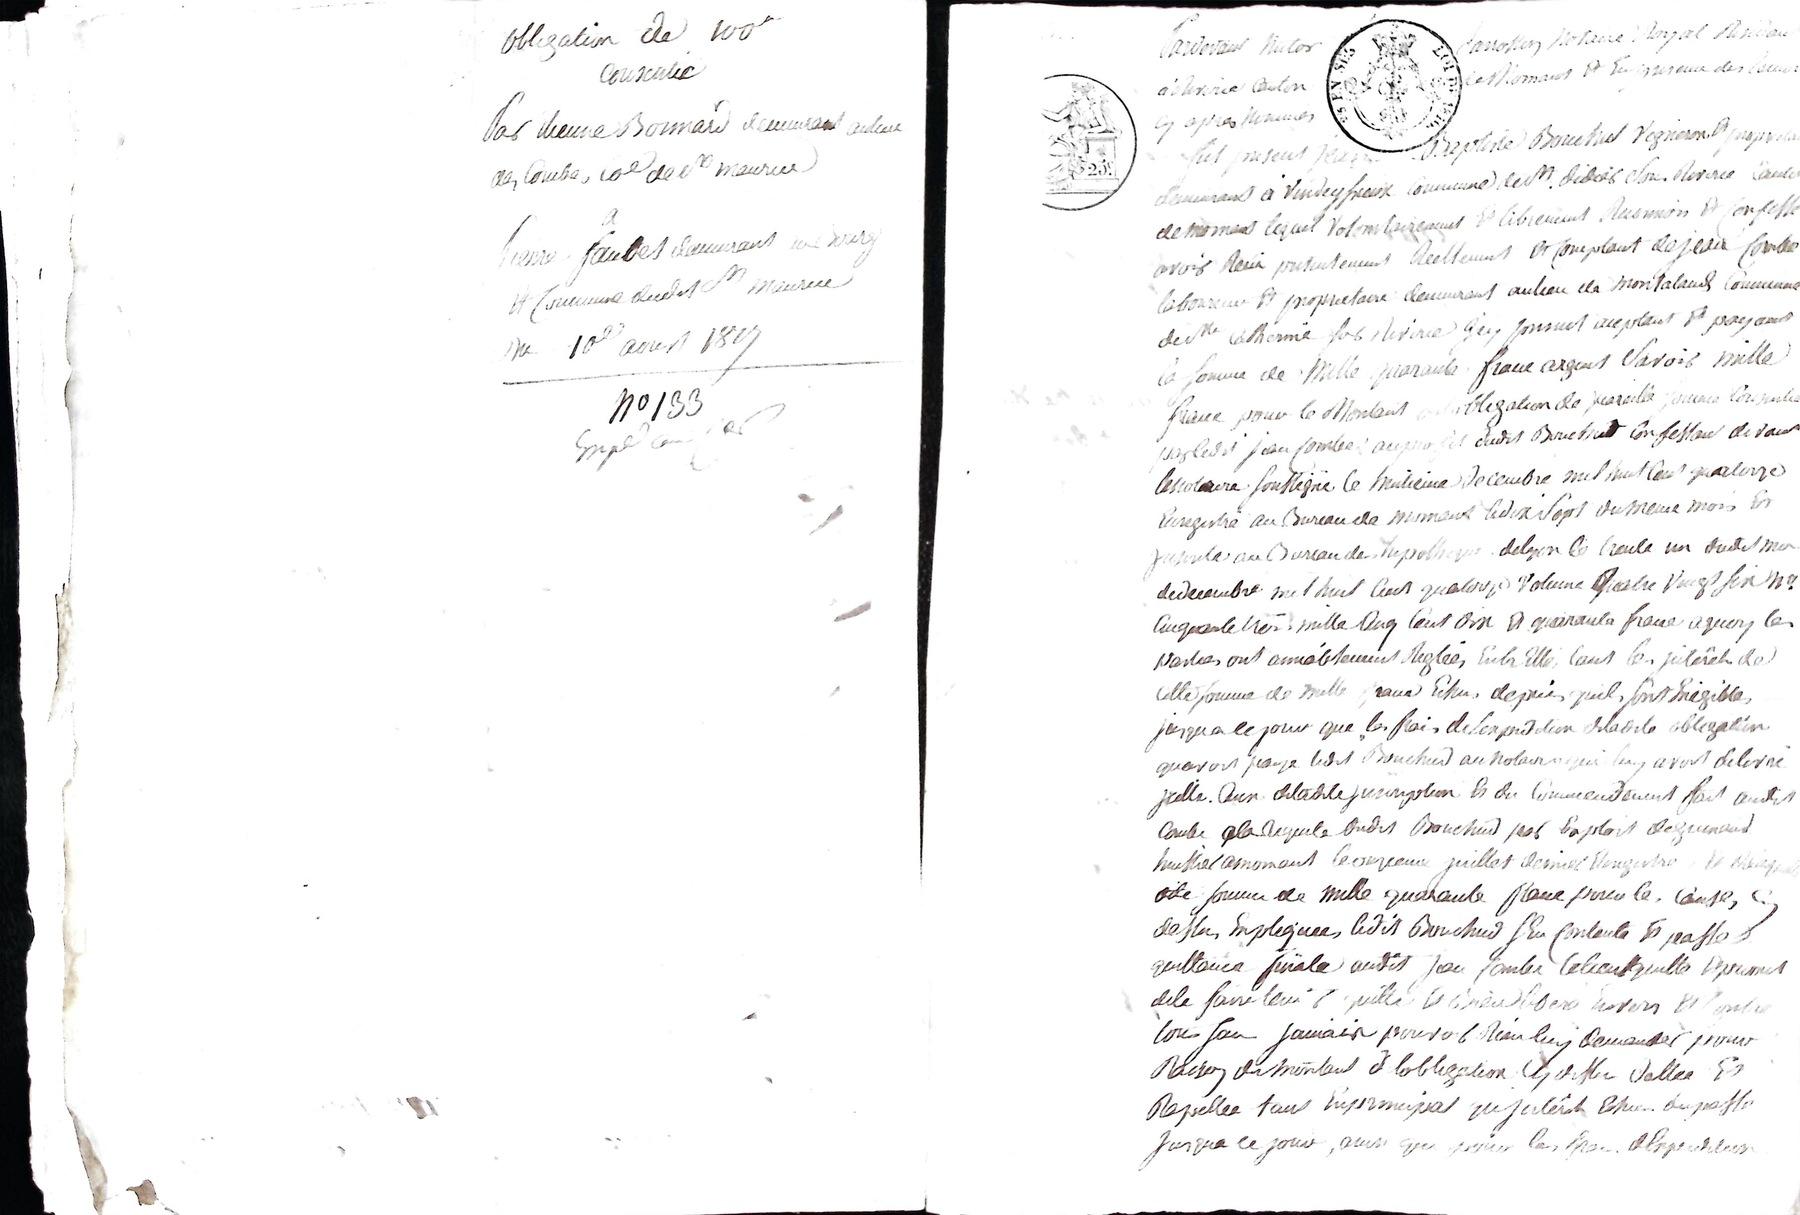 obligation de 100 f
consentie
Par Etienne Bonnard demeurant au lieu
des Combes Co^e de S^t maurice
a
Pierre faubet demeurant au bourg
et Commune dudit S^t maurice
Du 10 aoust 1817
N° 133
Pardevant Victor notaire Royal Résidant
à Riverie Canton de Mornant Et En présence des témoins
Cy après Nommés
fut présent Jean Baptiste Bouchut Vigneron et propriétaire
demeurant à Vindeyfreux Commune de S^t. didier Sous Riverie Canton
de mornant lequel Volontairement Et librement Reconnoit Et Confesse
avoir Reçu présentement Réellement Et Comptant de jean Combe
laboureur Et proprietaire demeurant au lieu de montaland Commune
de S^te Catherine sus Riverie Cy présent acceptant Et payant
la somme de Mille quarante franc argent Savoir mille
franc pour le Montant obligation de pareille somme Consentie
par ledit jean Combe au profit dudit Bouchut devant
le notaire soussigné le huitieme Décembre mil huit Cent quatorze
Enregistré au Bureau de mornant le dix Sept du meme mois Et
au Bureau des hypotheques de lyon le trente un dudit mois
de decembre mil huit Cent quatorze Volume quatre Vingt six N^o
Cinquante trois mille Cinq Cent dix Et quarante franc a quoy les
parties ont amiablement Reglées Entr'Elles tant les jnterêts de
cette somme de mille franc Echus depuis quils sont Exigibles
jusqua ce jour que les frais de lexpedition de ladite obligation
quavoit payé ledit Bouchud au notaire qui luy avoit delivré
jcelle. de ladite jnscription Et du Commendement fait audit
Combe a la Requete dudit Bouchud par Exploit de
huissier a mornant le onzieme juillet dernier Enregistré
somme de mille quarante franc pour les Causes Cy
dessus Expliquees ledit Bouchud s'En Contente Et passe
quittance finale audit jean Combe le tient quitte Et promet
de le faire tenir quitte Et libéré Envers Et Contre
tous sans jamais pouvoir Rien luy demander pour
Raison du montant de lobligation Cy dessus dattée Et
Rapellee tant En principal qu'jnterêts Echus du passé
jusqua ce jour, que pour les frais d'Expedition